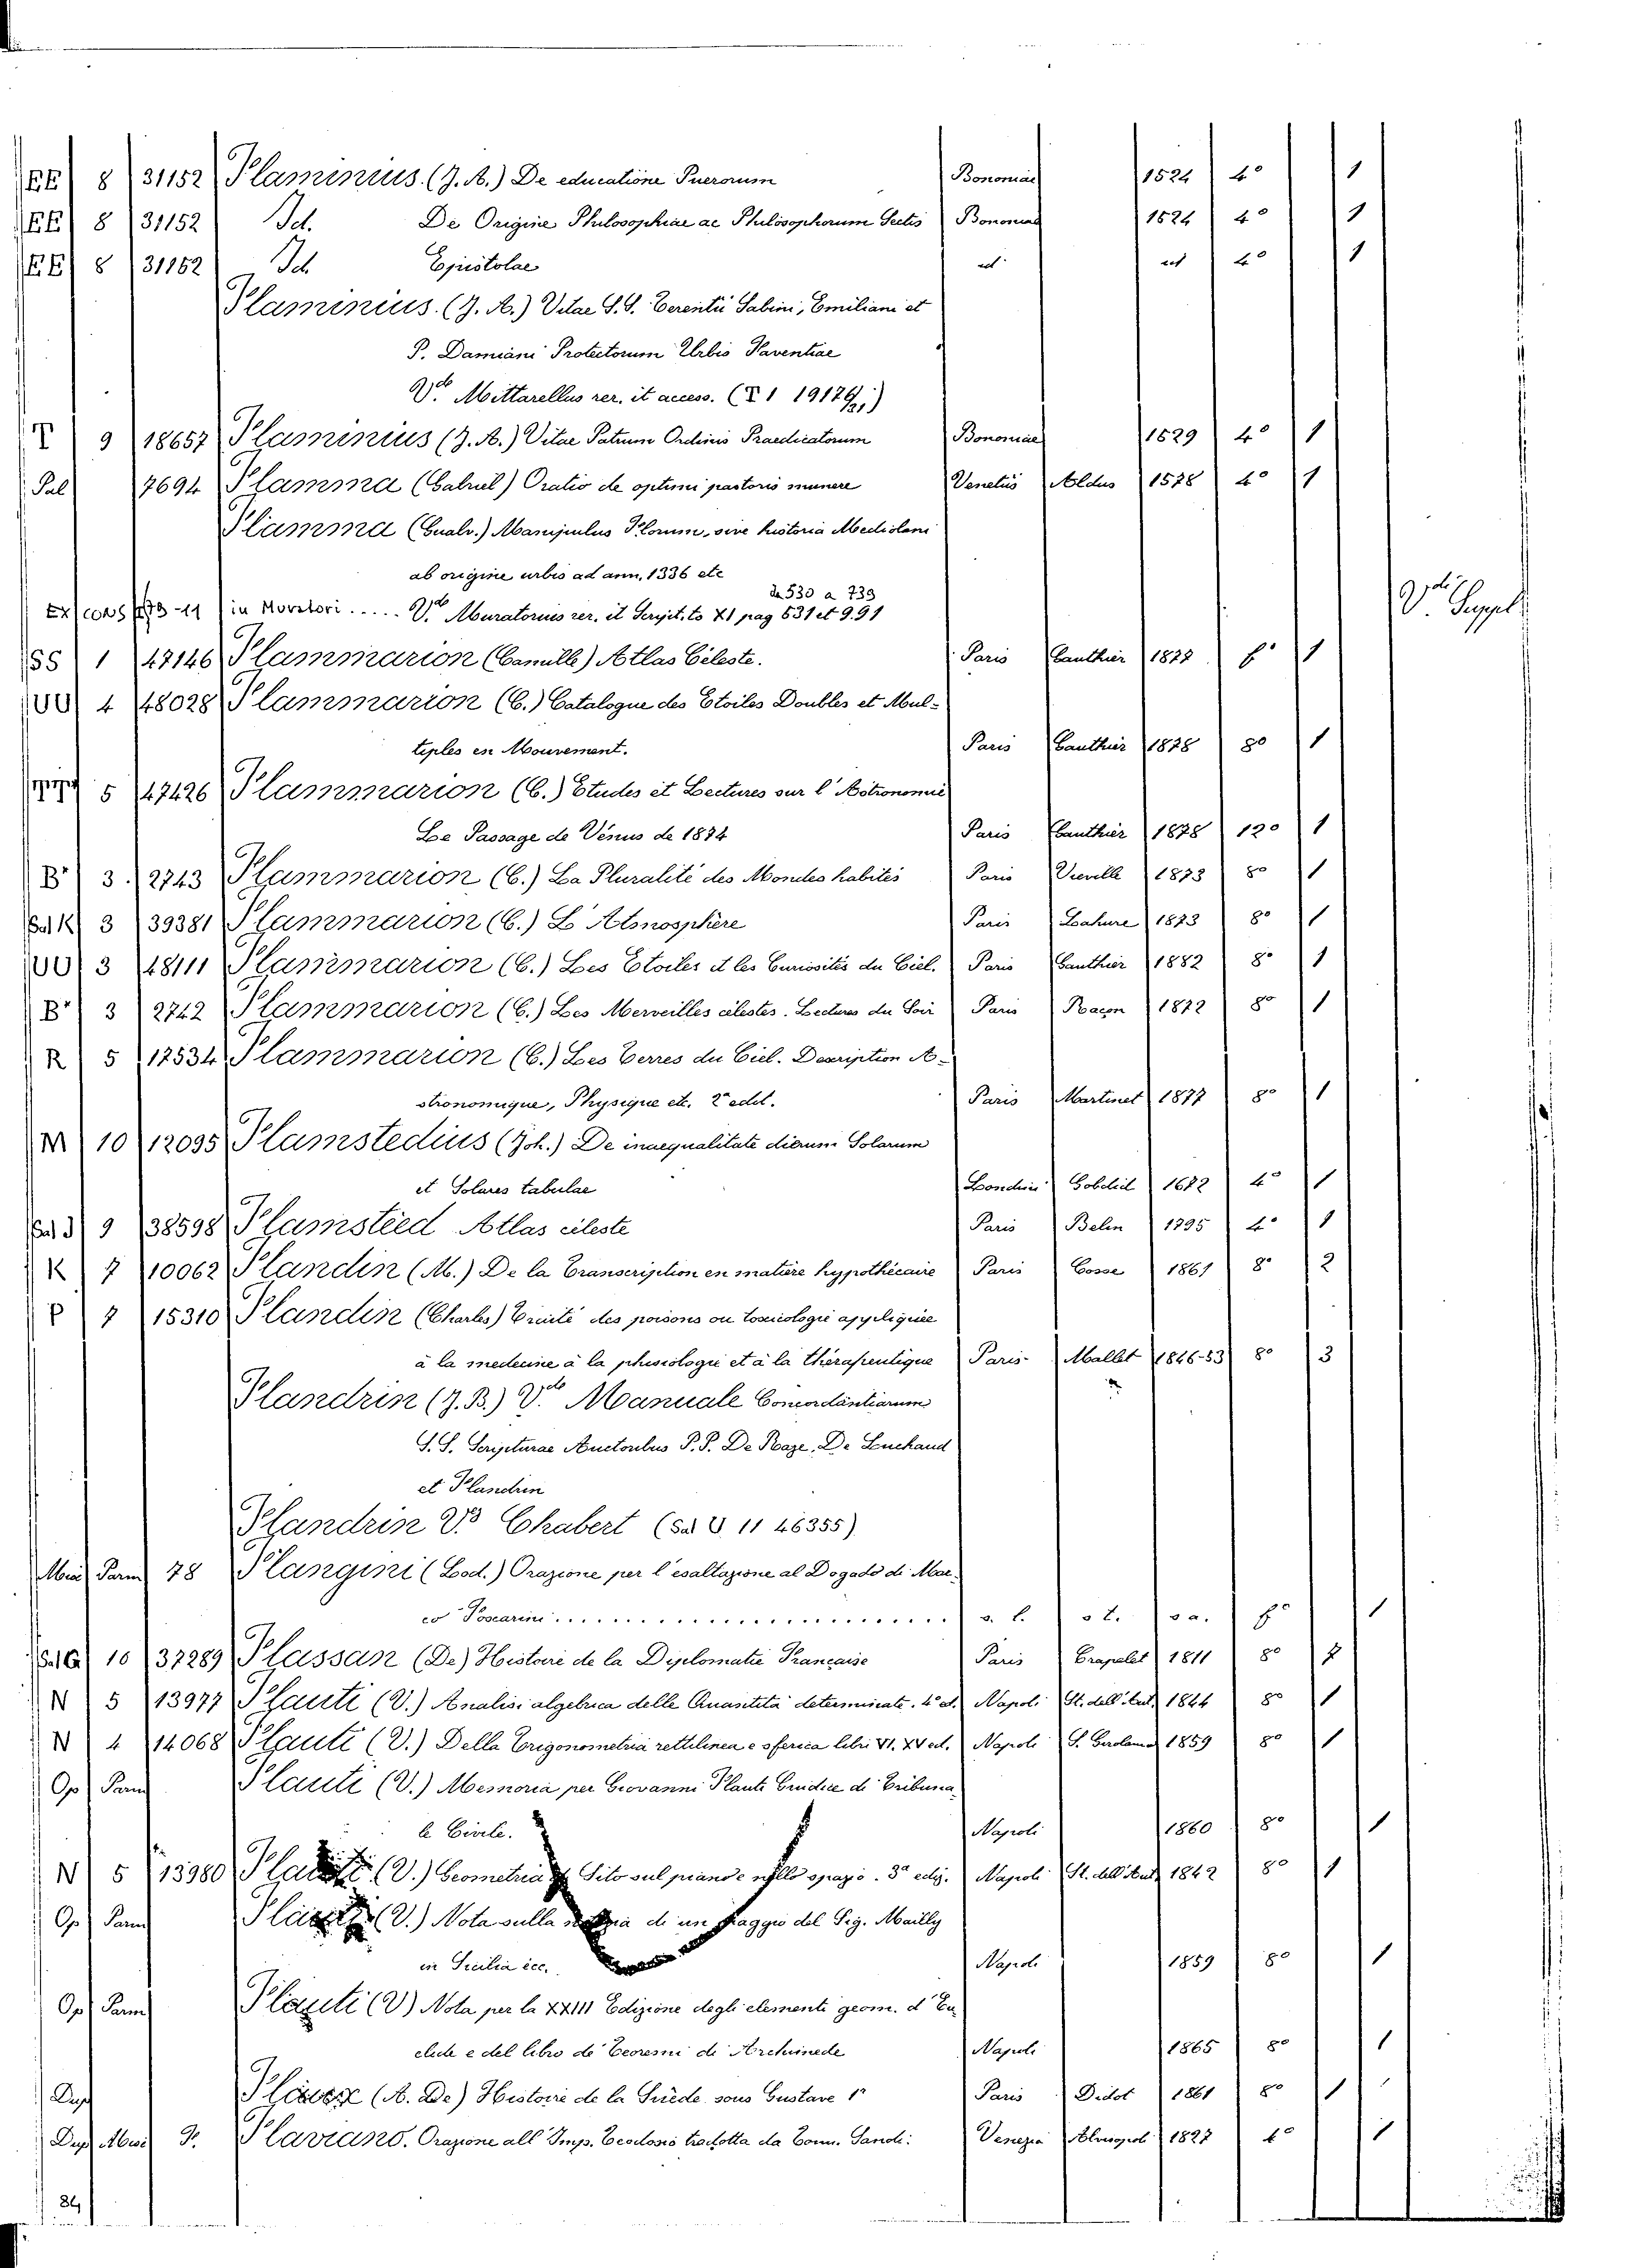 EE 8 31152 Flaminius. (J. A.) De educatione Puerorum Bononiae 1524 4° 1
EE 8 31152 Id. De Origine Philosophiae ac Philosophorum Sectis Bononiae 1524 4° 1
EE 8 31152 Id Epistolae id. id 4° 1
Flaminius. (J. A.) Vitae S. S. Terentii Sabini, Emiliani et
P. Damiani Protectorum Urbis Faventiae
V.do Mittarellus rer. it access. (T 1 19179/21)
T 9 18657 Flaminius (J. A.) Vitae Patrum Ordinis Praedicatorum Bononiae 1529 4° 1
Pal 7694 Flamma (Gabriel) Oratio de optimi pastoris munere Venetiis Aldus 1578 4° 1
Flamma (Gualv.) Manipulus Florum, sive historia Mediolani
ab origine urbis ad ann. 1336 etc
da 530 a 739
Ex cons in Muratori ..... V.do Muratorius rer. it Script. to XI pag 531 et 991 V.di Suppl.
SS 1 47146 Flammarion (Camille) Atlas Céleste. Paris Gauthier 1877 f° 1
UU 4 48028 Flammarion (C.) Catalogue des Etoiles Doubles et Mul-
tiples en Mouvement. Paris Gauthier 1878 8° 1
5 47426 Flammarion (C.) Etudes et Lectures sur l'Astronomie
Le Passage de Vénus de 1874 Paris Gauthier 1878 12° 1
B' 3. 2743 Flammarion (C.) La Pluralité des Mondes habités Paris Vieville 1873 8° 1
Sal K 3 39381 Flammarion (C.) L'Atmosphère Paris Lahure 1873 8° 1
UU 3 48111 Flammarion (C.) Les Etoiles et les Curiosités du Ciel. Paris Gauthier 1882 8° 1
B' 3 2742 Flammarion (C.) Les Merveilles célestes. Lectures du Soir Paris Raçon 1872 8° 1
R 5 17534 Flammarion (C.) Les Terres du Ciel. Description A-
stronomique, Physique etc. 2e edit. Paris Martinet 1877 8° 1
M 10 12095 Flamstedius (Joh.) De inaequalitate dierum Solarum
et Solares tabulae Londini Godbid 1672 4° 1
Sal J 9 38598 Flamsteed Atlas céleste Paris Belin 1795 4° 1
K 7 10062 Flandin (M.) De la Transcription en matière hypothécaire Paris Cosse 1861 8° 2
P 7 15310 Flandin (Charles) Traité des poisons ou toxicologie appliquée
à la medecine à la phisiologie et à la thérapeutique Paris- Mallet 1846-53 8° 3
Flandrin (J. B.) V.do Manuale Concordantiarum
S. S. Scripturae Auctoribus P. P. De Raze, De Lachaud
et Flandrin
Flandrin V.do Chabert (Sal U 11 46355)
Misc Parm 78 Flangini (Lod.) Orazione per l'esaltazione al Dogado di Mar-
co Foscarini .......... s. l. s t. s a. f° 1
Sal G 10 37289 Flassan (De) Histoire de la Diplomatie Française Paris Crapelet 1811 8° 7
N 5 13977 Flauti (V.) Analisi algebrica delle Quantità determinate. 4a ed. Napoli St. dell'Aut. 1844 8° 1
N 4 14068 Flauti (V.) Della Trigonometria rettilinea e sferica libri VI. XV ed. Napoli S. Gerolamo 1859 8° 1
Op Parm Flauti (V.) Memoria per Giovanni Flauti Giudice di Tribuna-
le Civile. Napoli 1860 8° 1
N 5 13980 Flauti (V.) Geometria di Sito sul piano e nello spazio. 3a ediz. Napoli St. dell'Aut. 1842 8° 1
Op Parm Flauti (V.) Nota sulla di un saggio del Sig. Mailly
in Sicilia ecc. Napoli 1859 8° 1
Op Parm Flauti (V) Nota per la XXIII Edizione degli elementi geom. d'Eu-
clide e del libro de' Teoremi di Archimede Napoli 1865 8° 1
Dup (A. De) Histoire de la Suède sous Gustave 1r Paris Didot 1861 8° 1
Dup Misc F. Flaviano. Orazione all'Imp. Teodosio tradotta da Tom. Sandi: Venezia Alvisopoli 1827 4° 1
84